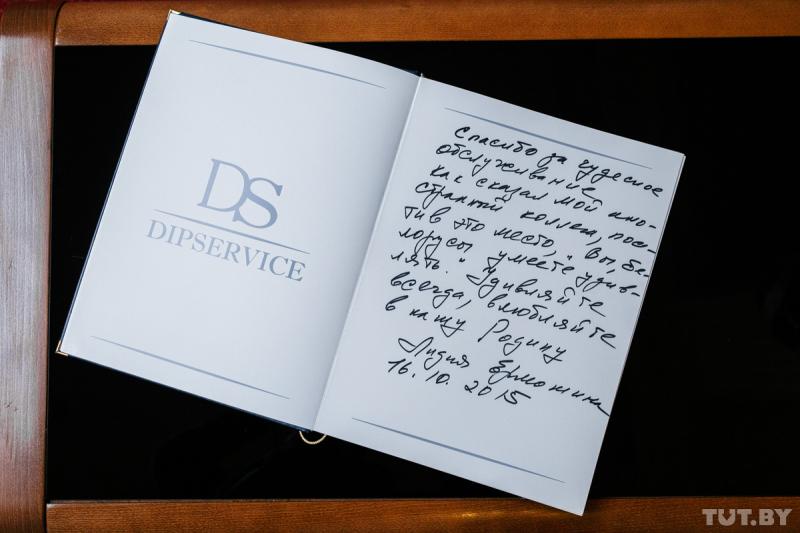 DS
DIPSERVICE
Спасибо за чудесное
обслуживание
как сказал мой ино-
странный коллега, посе-
тив это место, "Вы, бе-
лорусы, умеете удив-
лять." Удивляйте
всегда, влюбляйте
в нашу Родину
Лидия Ермошина
16.10.2015
TUT.BY